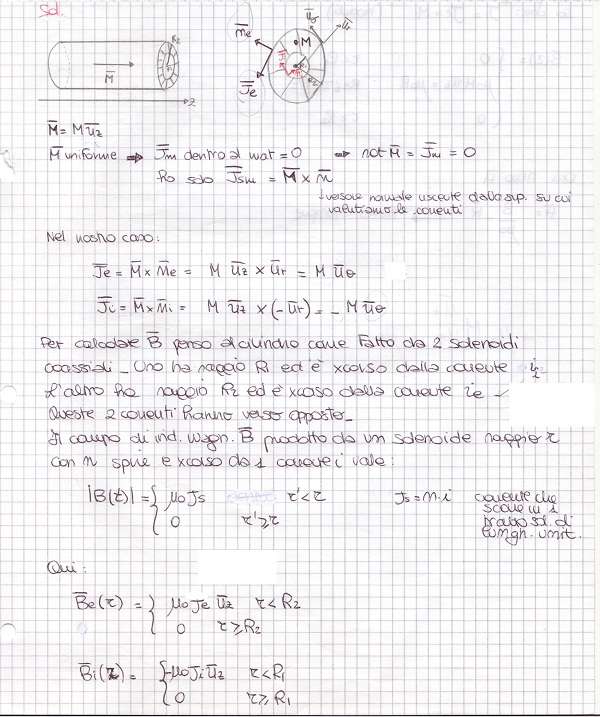 Sol.
R2
M̄
z
m̄e
ūθ
ūr
M
J̄e
R2
M̄ = M ūz
M̄ uniforme ⇒ J̄m dentro al mat = 0 ⇒ rot M̄ = J̄m = 0
ho solo J̄sm = M̄ × n̄
↓ versore normale uscente dalla sup. su cui
valutiamo le correnti
Nel nostro caso:
J̄e = M̄ × n̄e = M ūz × ūr = M ūθ
J̄i = M̄ × n̄i = M ūz × (-ūr) = - M ūθ
Per calcolare B̄ penso al cilindro come fatto da 2 solenoidi
coassiali - Uno ha raggio R1 ed è xcorso dalla corrente ii
L'altro ha raggio R2 ed è xcorso dalla corrente ie -
Queste 2 correnti hanno verso opposto -
Il campo di ind. magn. B̄ prodotto da un solenoide raggio r
con n spire e xcorso da 1 corrente i vale:
|B(r)| = { μ0 Js r' < r Js = n·i corrente che
0 r' ≥ r scorre in 1
tratto sol. di
lungh. unit.
Qui:
B̄e(r) = { μ0 Je ūz r < R2
0 r ≥ R2
B̄i(r) = { -μ0 Ji ūz r < R1
0 r ≥ R1